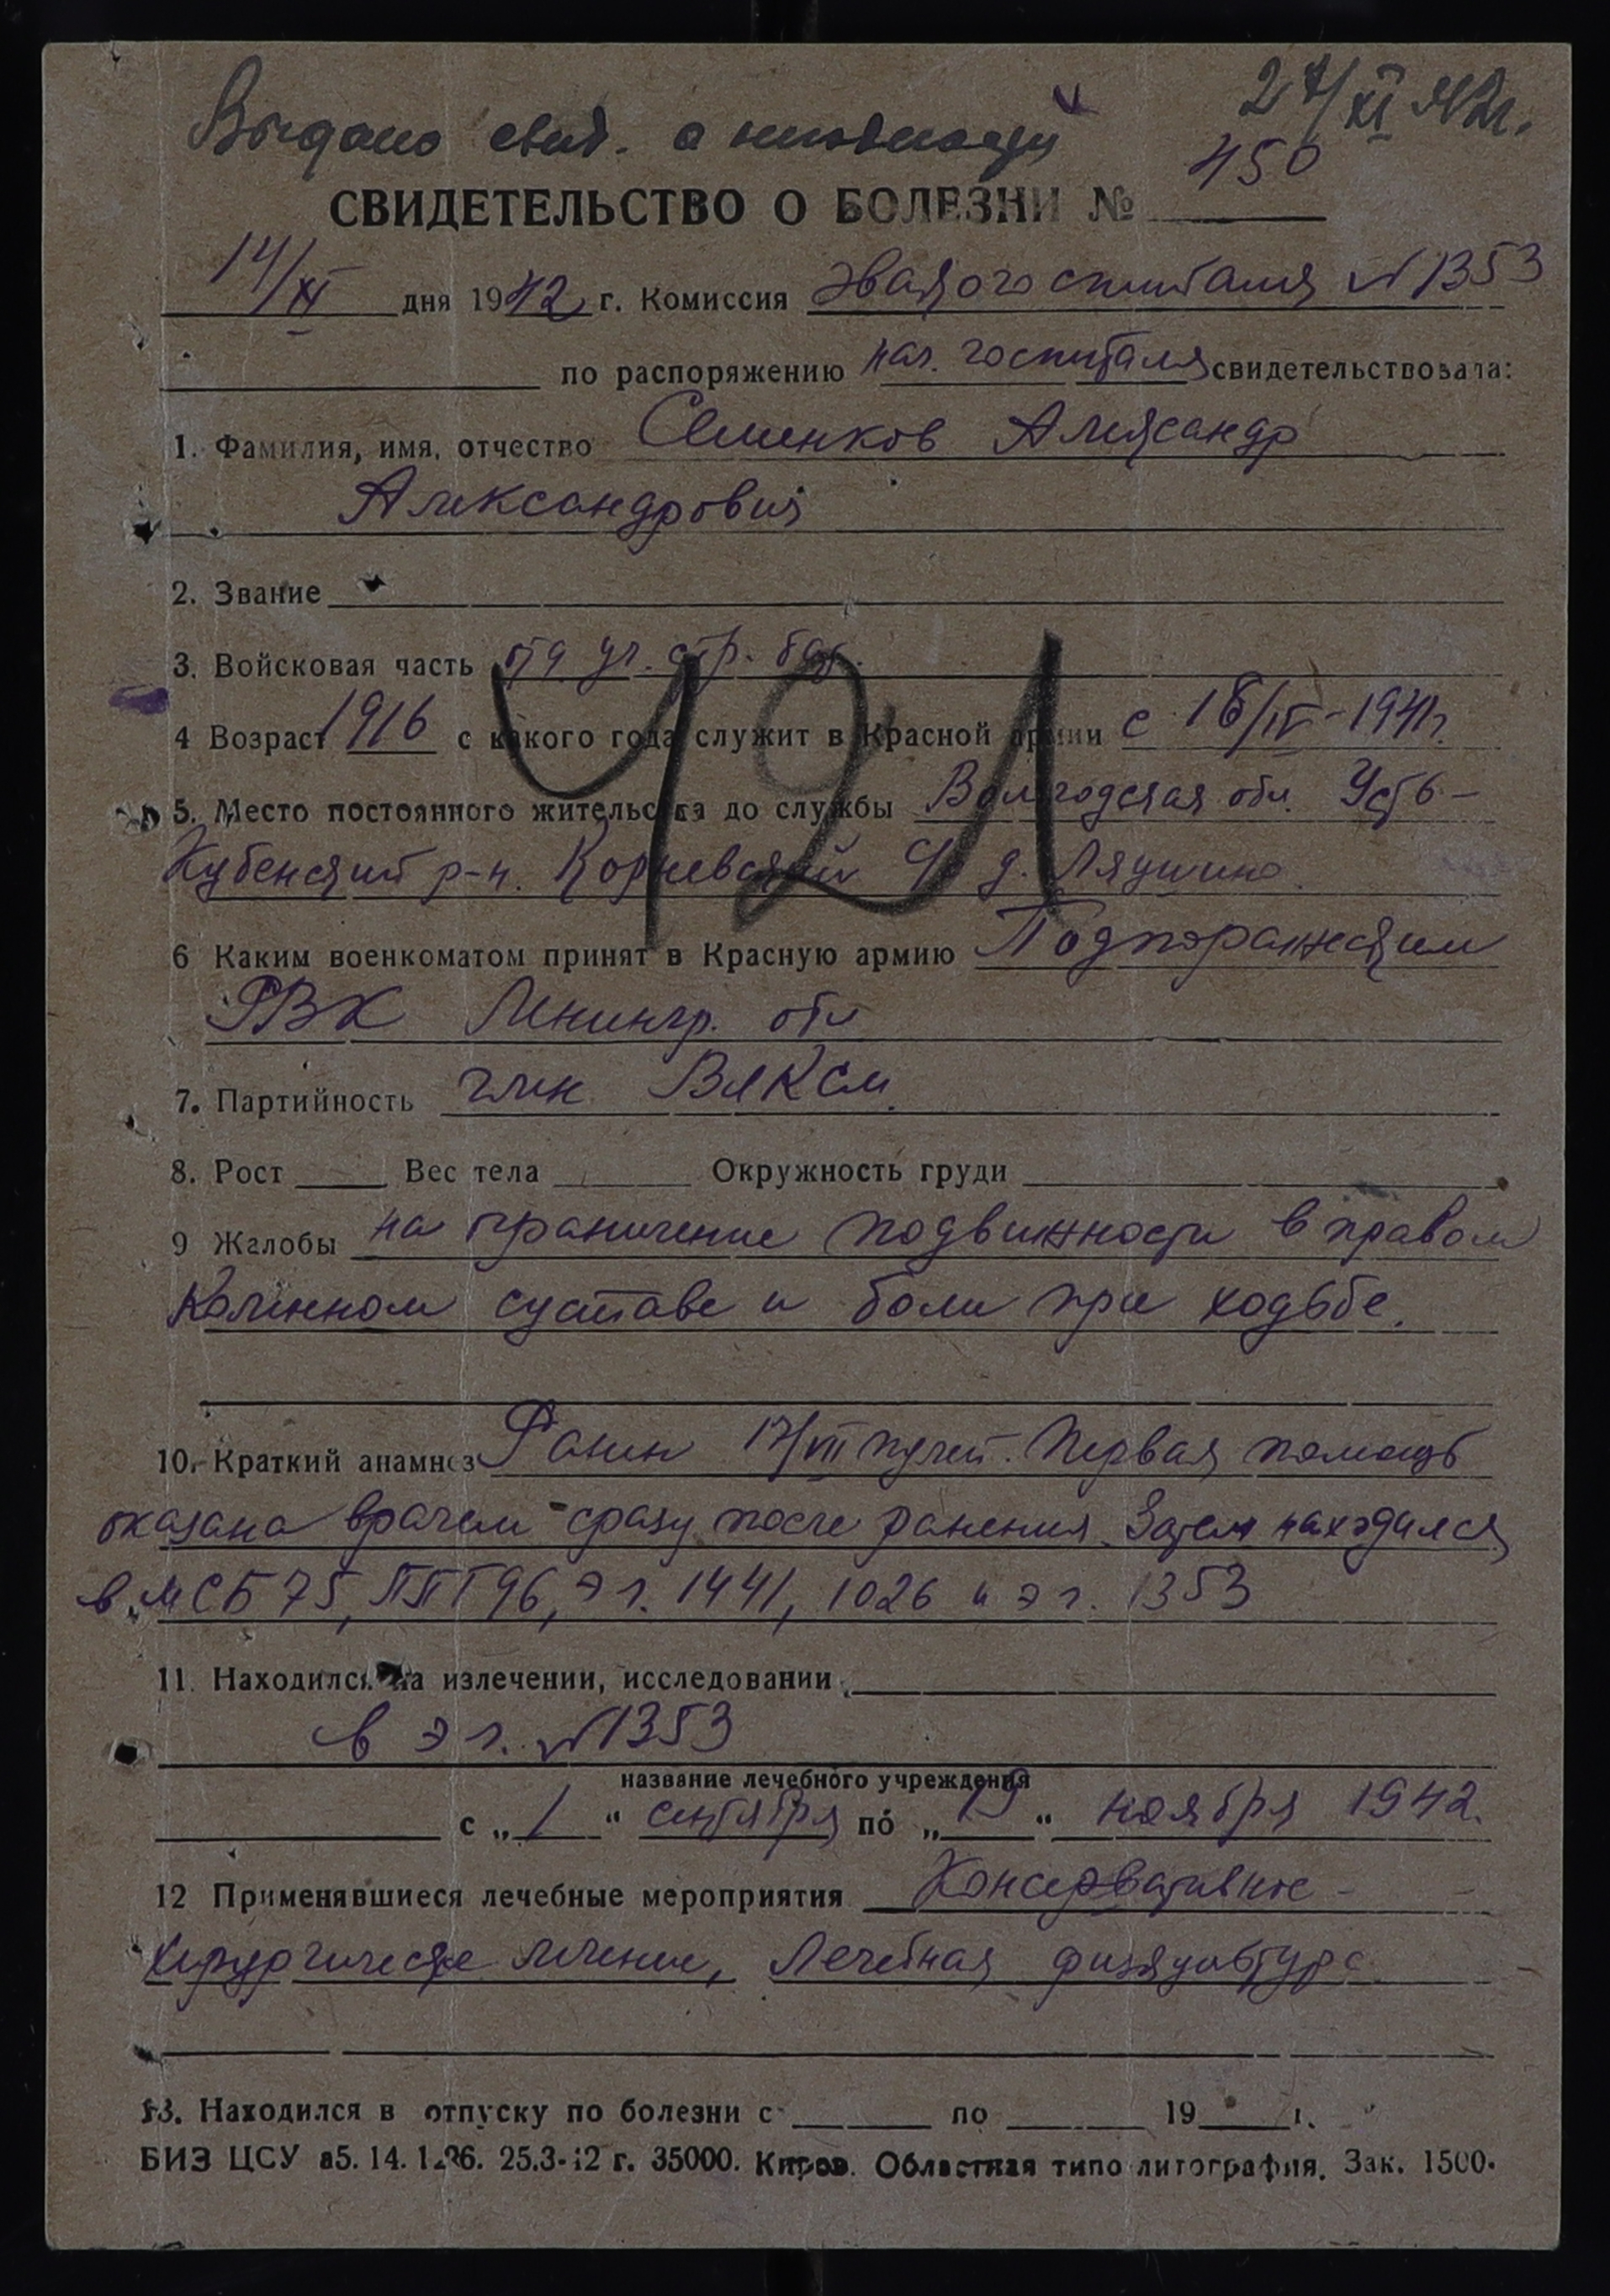 27/XI 42г.
Выдано свид. о
450
СВИДЕТЕЛЬСТВО О БОЛЕЗНИ №
14/XI дня 1942 г. Комиссия эвакогоспиталя №1353
по распоряжению нач. госпиталя свидетельствовала:
1. Фамилия, имя, отчество Семенков Александр
Александрович
2. Звание
3. Войсковая часть отд. уч. стр. бат.
4 Возраст 1916 с какого года служит в Красной армии с 16/IV-1941г.
5. Место постоянного жительства до службы Вологодская обл. Усть-
Кубенский р-н. Корневский с/с д. Лякушино
421
6 Каким военкоматом принят в Красную армию Подпорожским
РВК Ленингр. обл
7. Партийность член ВЛКСМ.
8. Рост Вес тела Окружность груди
9 Жалобы на ограничение подвижности в правом
коленном суставе и боли при ходьбе.
10. Краткий анамнез Ранен 17/VIII пулей. Первая помощь
оказана врачем сразу после ранения. Затем находился
в МСБ 75, ППГ 96, Э г. 1441, 1026 и э г. 1353
11. Находился на излечении, исследовании
в э г. №1353
название лечебного учреждения
с „1“ сентября по „19“ ноября 1942.
12 Применявшиеся лечебные мероприятия Консервативное -
хирургическое лечение, лечебная физкультура
13. Находился в отпуску по болезни с по 19 г.
БИЗ ЦСУ 25.3-42 г. 35000. Киров. Областная типо литография. Зак. 1500.